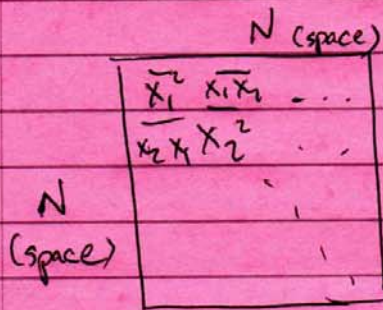 N (space)
x̅₁² x̅₁x̅₂ ...
x̅₂x̅₁ x₂² ..
N
(space)